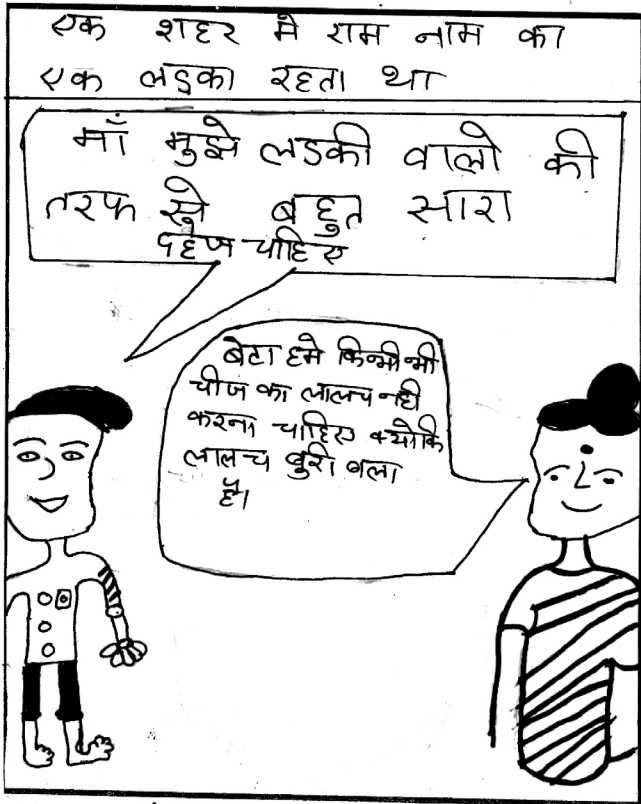 एक शहर मे राम नाम का
एक लड़का रहता था
माँ मुझे लडकी वालो की
तरफ से बहुत सारा
दहेज चाहिए
बेटा हमे किसी भी
चीज का लालच नही
करना चाहिए क्योकि
लालच बुरी बला
है।